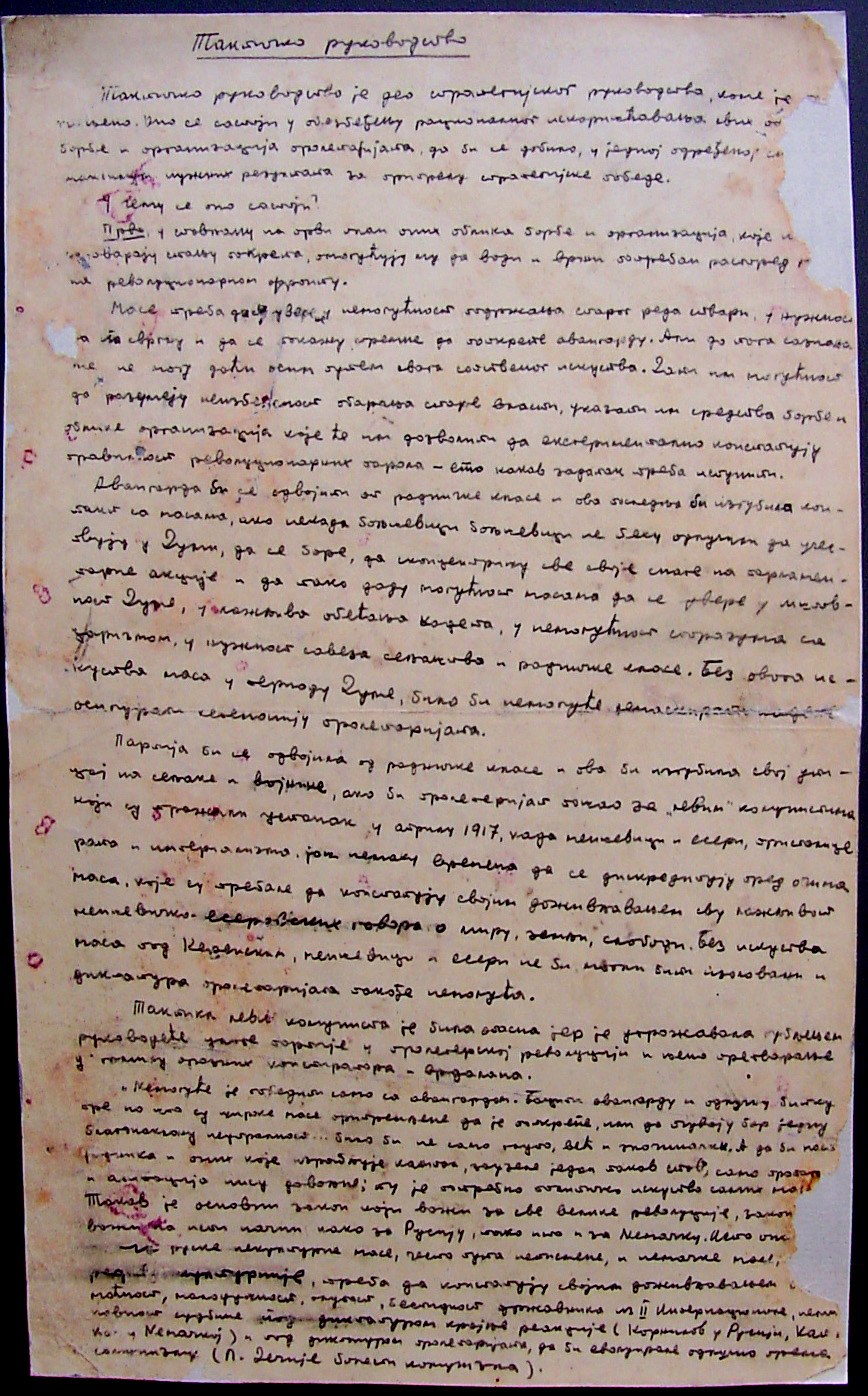 Тактичко руководство
Тактичко руководство је део стратегијског руководства, коме је
Оно се састоји у обезбеђењу рационалног искоришћавања свих об
борбе и организација пролетаријата, да би се добило, у једној одређеној си
нужних резултата за припрему стратегијске победе.
У чему се оно састоји?
Прво, у стављању на први план оних облика борбе и организација, које
одговарају стању покрета, омогућују му да води и врши потребан распоред
на револуционарном фронту.
Масе треба да се увере у немогућност одржања старог реда ствари, у нужнос
та га свргну и да се покажу спремне да подрже авангарду. Али до тога сазнања
не могу доћи осим путем свога сопственог искуства. Дати им могућност
да разумеју неизбежност обарања старе власти, указати им средства борбе и
облике организација које ће им дозволити да експериментално констатују
правилност револуционарних парола – ето какав задатак треба испунити.
Авангарда би се одвојила од радничке класе и ова последња би изгубила кон-
такт са масама, ако некада бољшевици бољшевици не беху одлучили да учес-
твују у Думи, да се боре, да сконцентришу све своје снаге на парламен-
тарне акције и да тако даду могућност масама да се увере у ништав-
ност Думе, у лажљива обећања кадета, у немогућност споразума са
царизмом, у нужност савеза сељаштва и радничке класе. Без овога ис-
куства маса у периоду Думе, било би немогуће
осигурати хегемонију пролетаријата.
Партија би се одвојила од радничке класе и ова би изгубила свој ути-
цај на сељаке и војнике, ако би пролетеријат пошао за „левим" комунистима
који су тражили устанак у априлу 1917, када мењшевици и есери, присталице
рата и империализма, још немаху времена да се дискредитују пред очима
маса, које су требале да констатују својим доживљавањем сву лажљивост
мењшевичко-есеровских говора о миру, земљи, слободи. Без искуства
маса под Керенским, мењшевици и есери не би могли бити изоловани и
диктатура пролетаријата такође немогућа.
Тактика левих комуниста је била опасна јер је угрожавала убијањем
руководеће улоге партије у пролетерској револуцији и њено претварање
у гомилу празних конспиратора – брбљала.
„Немогуће је победити само са авангардом. Бацити авангарду и одлучну битку
пре но што су широке масе припремљене да је подрже, или да очувају бар једну
благонаклону неутралност... било би не само глупо, већ и злочиначки. А да би маса
радника и оних које израбљује капитал, заузеле један такав став, само пропага
и агитација нису довољне; ту је потребно политичко искуство самих ма
Такав је основни закон који важи за све велике револуције, закон
важи на исти начин како за Русију, тако што и за Немачку. Исто он
руске некултурне масе, често пута неписмене, и немачке мас
треба да констатују својим доживљавањем
малодушност, глупост, беспидност државника из II Интернационале, неми
новност судбине под диктатуром крајње реакције (Корнилов у Русији, Кап
Ко. у Немачкој) и под диктатуром пролетаријата, да би еволуирале одлучно према
комунизму (Л. Дечије болести комунизма).